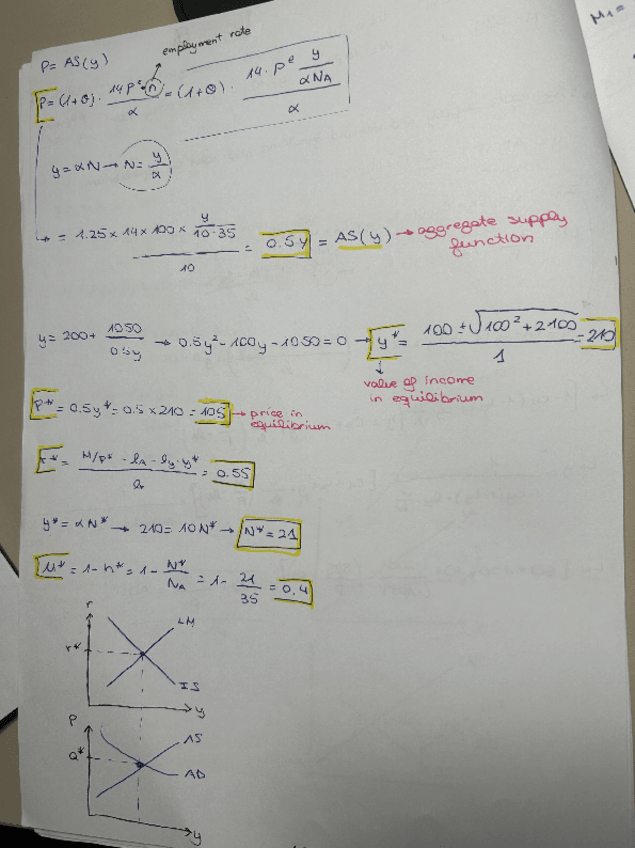 M₁ =
employment rate
P = AS(y)
P = (1+θ) · \frac{14 P^e · n}{α} = (1+θ) · \frac{14 · P^e \frac{y}{αN_A}}{α}
y = αN → N = \frac{y}{α}
→ = \frac{1.25 × 14 × 100 × \frac{y}{10·35}}{10} = 0.5y = AS(y) → aggregate supply
function
y = 200 + \frac{1050}{0.5y} → 0.5y² - 100y - 1050 = 0 → y* = \frac{100 ± \sqrt{100² + 2100}}{1} = 210
value of income
in equilibrium
P* = 0.5y* = 0.5 × 210 = 105 → price in
equilibrium
r* = \frac{M/P* - l_A - l_y · y*}{l_r} = 0.55
y* = αN* → 210 = 10N* → N* = 21
u* = 1 - n* = 1 - \frac{N*}{N_A} = 1 - \frac{21}{35} = 0.4
r
LM
r*
IS
y
P
AS
Q*
AD
y